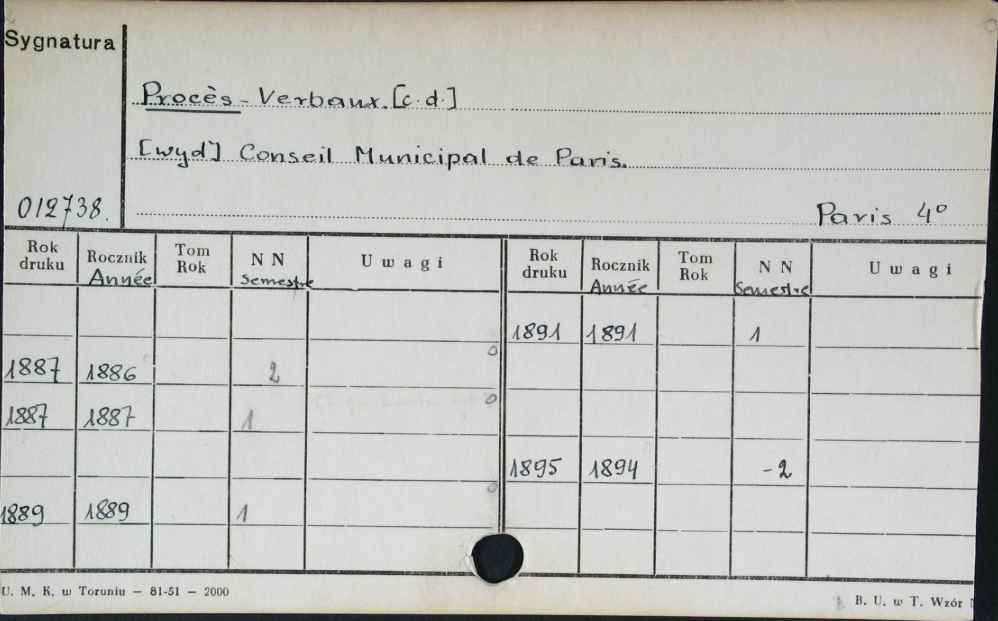 Sygnatura
Procès-Verbaux. [c.d.]
[wyd] Conseil Municipal de Paris.
012738.
Paris 4º
Rok druku Rocznik Année Tom Rok NN Semestre Uwagi Rok druku Rocznik Année Tom Rok NN Semestre Uwagi
1891 1891 1
1887 1886 2
1887 1887 1
1895 1894 -2
1889 1889 1
U. M. K. w Toruniu — 81-51 — 2000
B. U. w T. Wzór